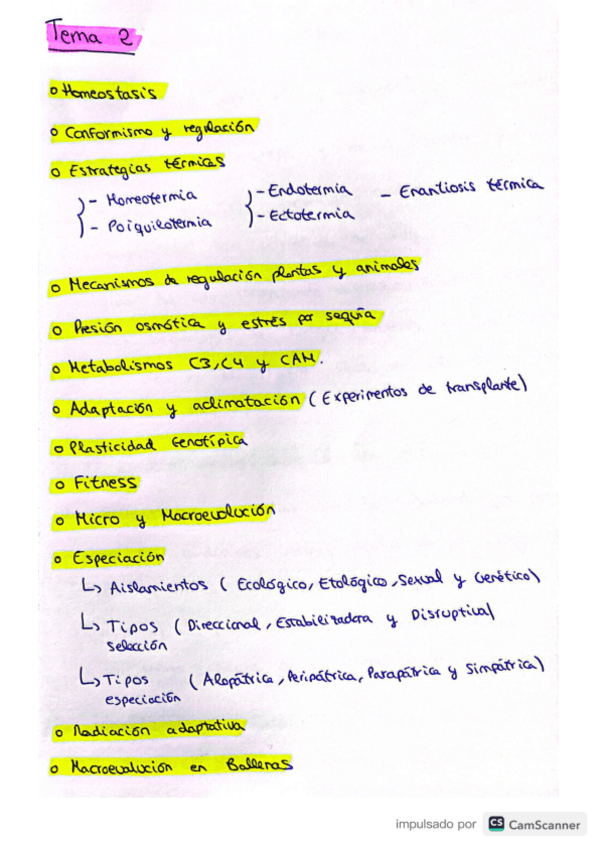 Tema 2
o Homeostasis
o Conformismo y regulación
o Estrategias térmicas
- Homeotermia - Endotermia - Enantiosis térmica
- Poiquilotermia - Ectotermia
o Mecanismos de regulación plantas y animales
o Presión osmótica y estrés por sequía
o Metabolismos C3, C4 y CAM.
o Adaptación y aclimatación (Experimentos de transplante)
o Plasticidad Genotípica
o Fitness
o Micro y Macroevolución
o Especiación
↳ Aislamientos (Ecológico, Etológico, Sexual y Genético)
↳ Tipos (Direccional, Estabilizadora y Disruptiva)
selección
↳ Tipos (Alopátrica, Peripátrica, Parapátrica y Simpátrica)
especiación
o Radiación adaptativa
o Macroevolución en Ballenas
impulsado por CS CamScanner